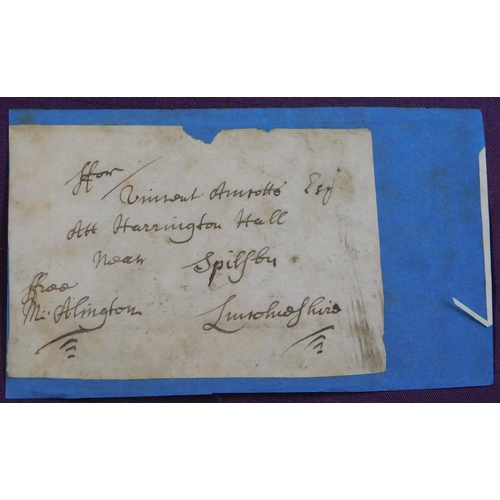 ffor
Vincent Amcotts Esqr
Att Harrington Hall
Near Spilsby
ffree
M: Alington Lincolneshire